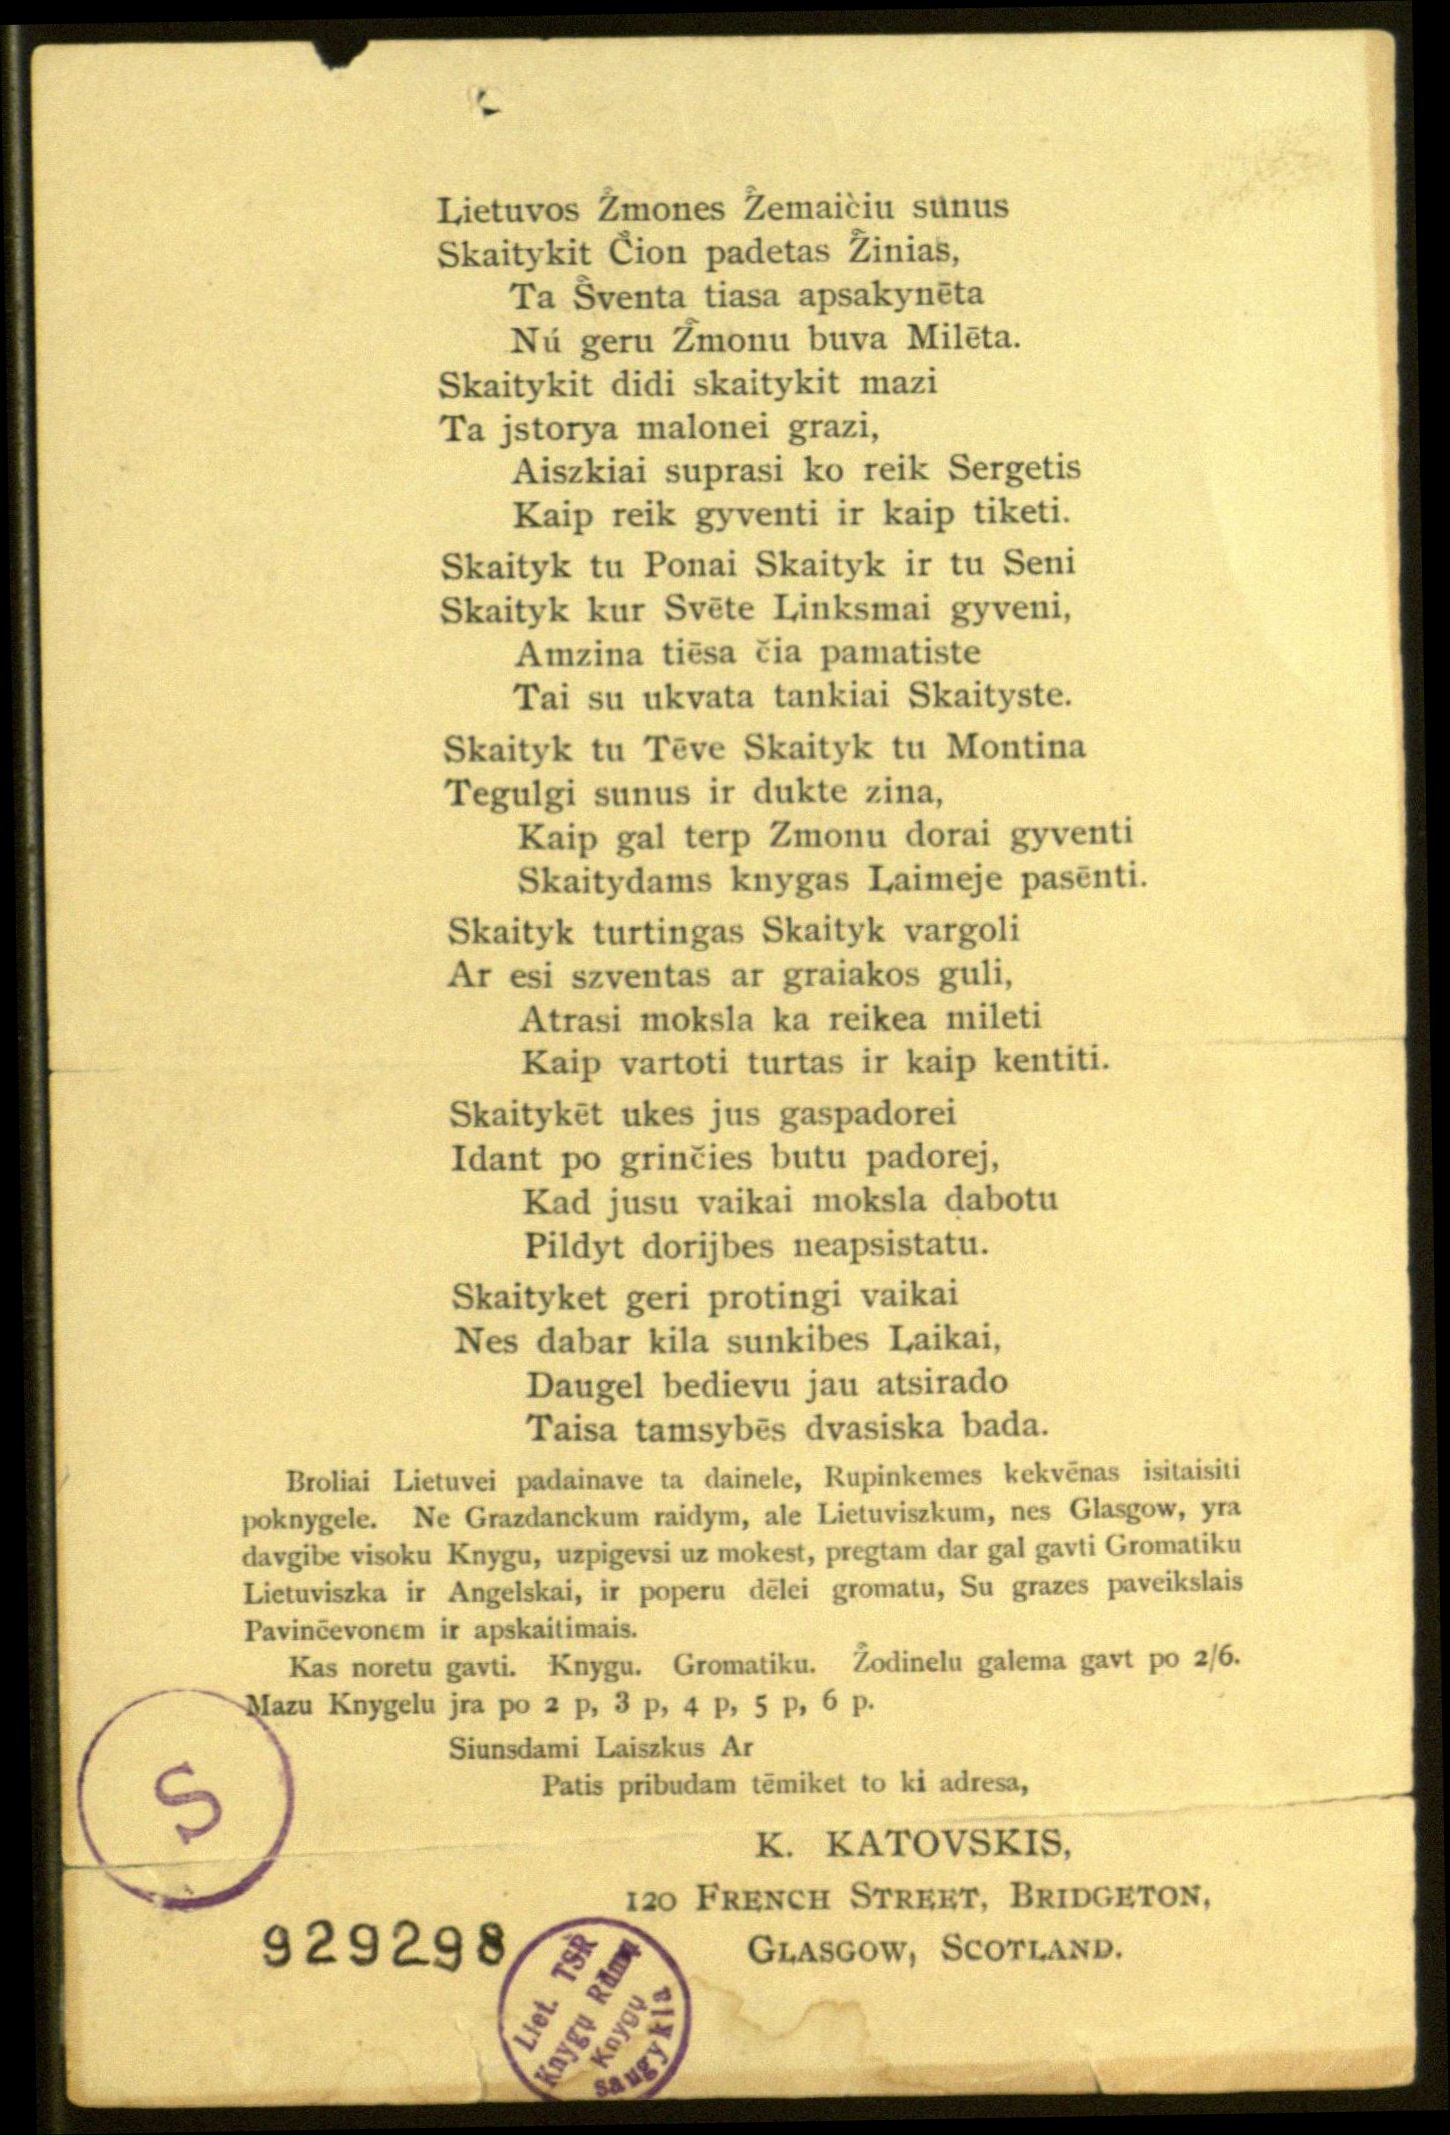 Lietuvos Žmones Žemaičiu sunus
Skaitykit Čion padetas Žinias,
Ta Šventa tiasa apsakynēta
Nú geru Žmonu buva Milēta.
Skaitykit didi skaitykit mazi
Ta jstorya malonei grazi,
Aiszkiai suprasi ko reik Sergetis
Kaip reik gyventi ir kaip tiketi.
Skaityk tu Ponai Skaityk ir tu Seni
Skaityk kur Svēte Linksmai gyveni,
Amzina tiēsa čia pamatiste
Tai su ukvata tankiai Skaityste.
Skaityk tu Tēve Skaityk tu Montina
Tegulgi sunus ir dukte zina,
Kaip gal terp Zmonu dorai gyventi
Skaitydams knygas Laimeje pasēnti.
Skaityk turtingas Skaityk vargoli
Ar esi szventas ar graiakos guli,
Atrasi moksla ka reikea mileti
Kaip vartoti turtas ir kaip kentiti.
Skaitykēt ukes jus gaspadorei
Idant po grinčies butu padorej,
Kad jusu vaikai moksla dabotu
Pildyt dorijbes neapsistatu.
Skaityket geri protingi vaikai
Nes dabar kila sunkibes Laikai,
Daugel bedievu jau atsirado
Taisa tamsybēs dvasiska bada.
Broliai Lietuvei padainave ta dainele, Rupinkemes kekvēnas isitaisiti
poknygele. Ne Grazdanckum raidym, ale Lietuviszkum, nes Glasgow, yra
davgibe visoku Knygu, uzpigevsi uz mokest, pregtam dar gal gavti Gromatiku
Lietuviszka ir Angelskai, ir poperu dēlei gromatu, Su grazes paveikslais
Pavinčevonem ir apskaitimais.
Kas noretu gavti. Knygu. Gromatiku. Žodinelu galema gavt po 2/6.
Mazu Knygelu jra po 2 p, 3 p, 4 p, 5 p, 6 p.
Siunsdami Laiszkus Ar
Patis pribudam tēmiket to ki adresa,
K. KATOVSKIS,
120 FRENCH STREET, BRIDGETON,
GLASGOW, SCOTLAND.
S
929298
Liet. TSR
Knygų Rūmų
Knygų
saugykla